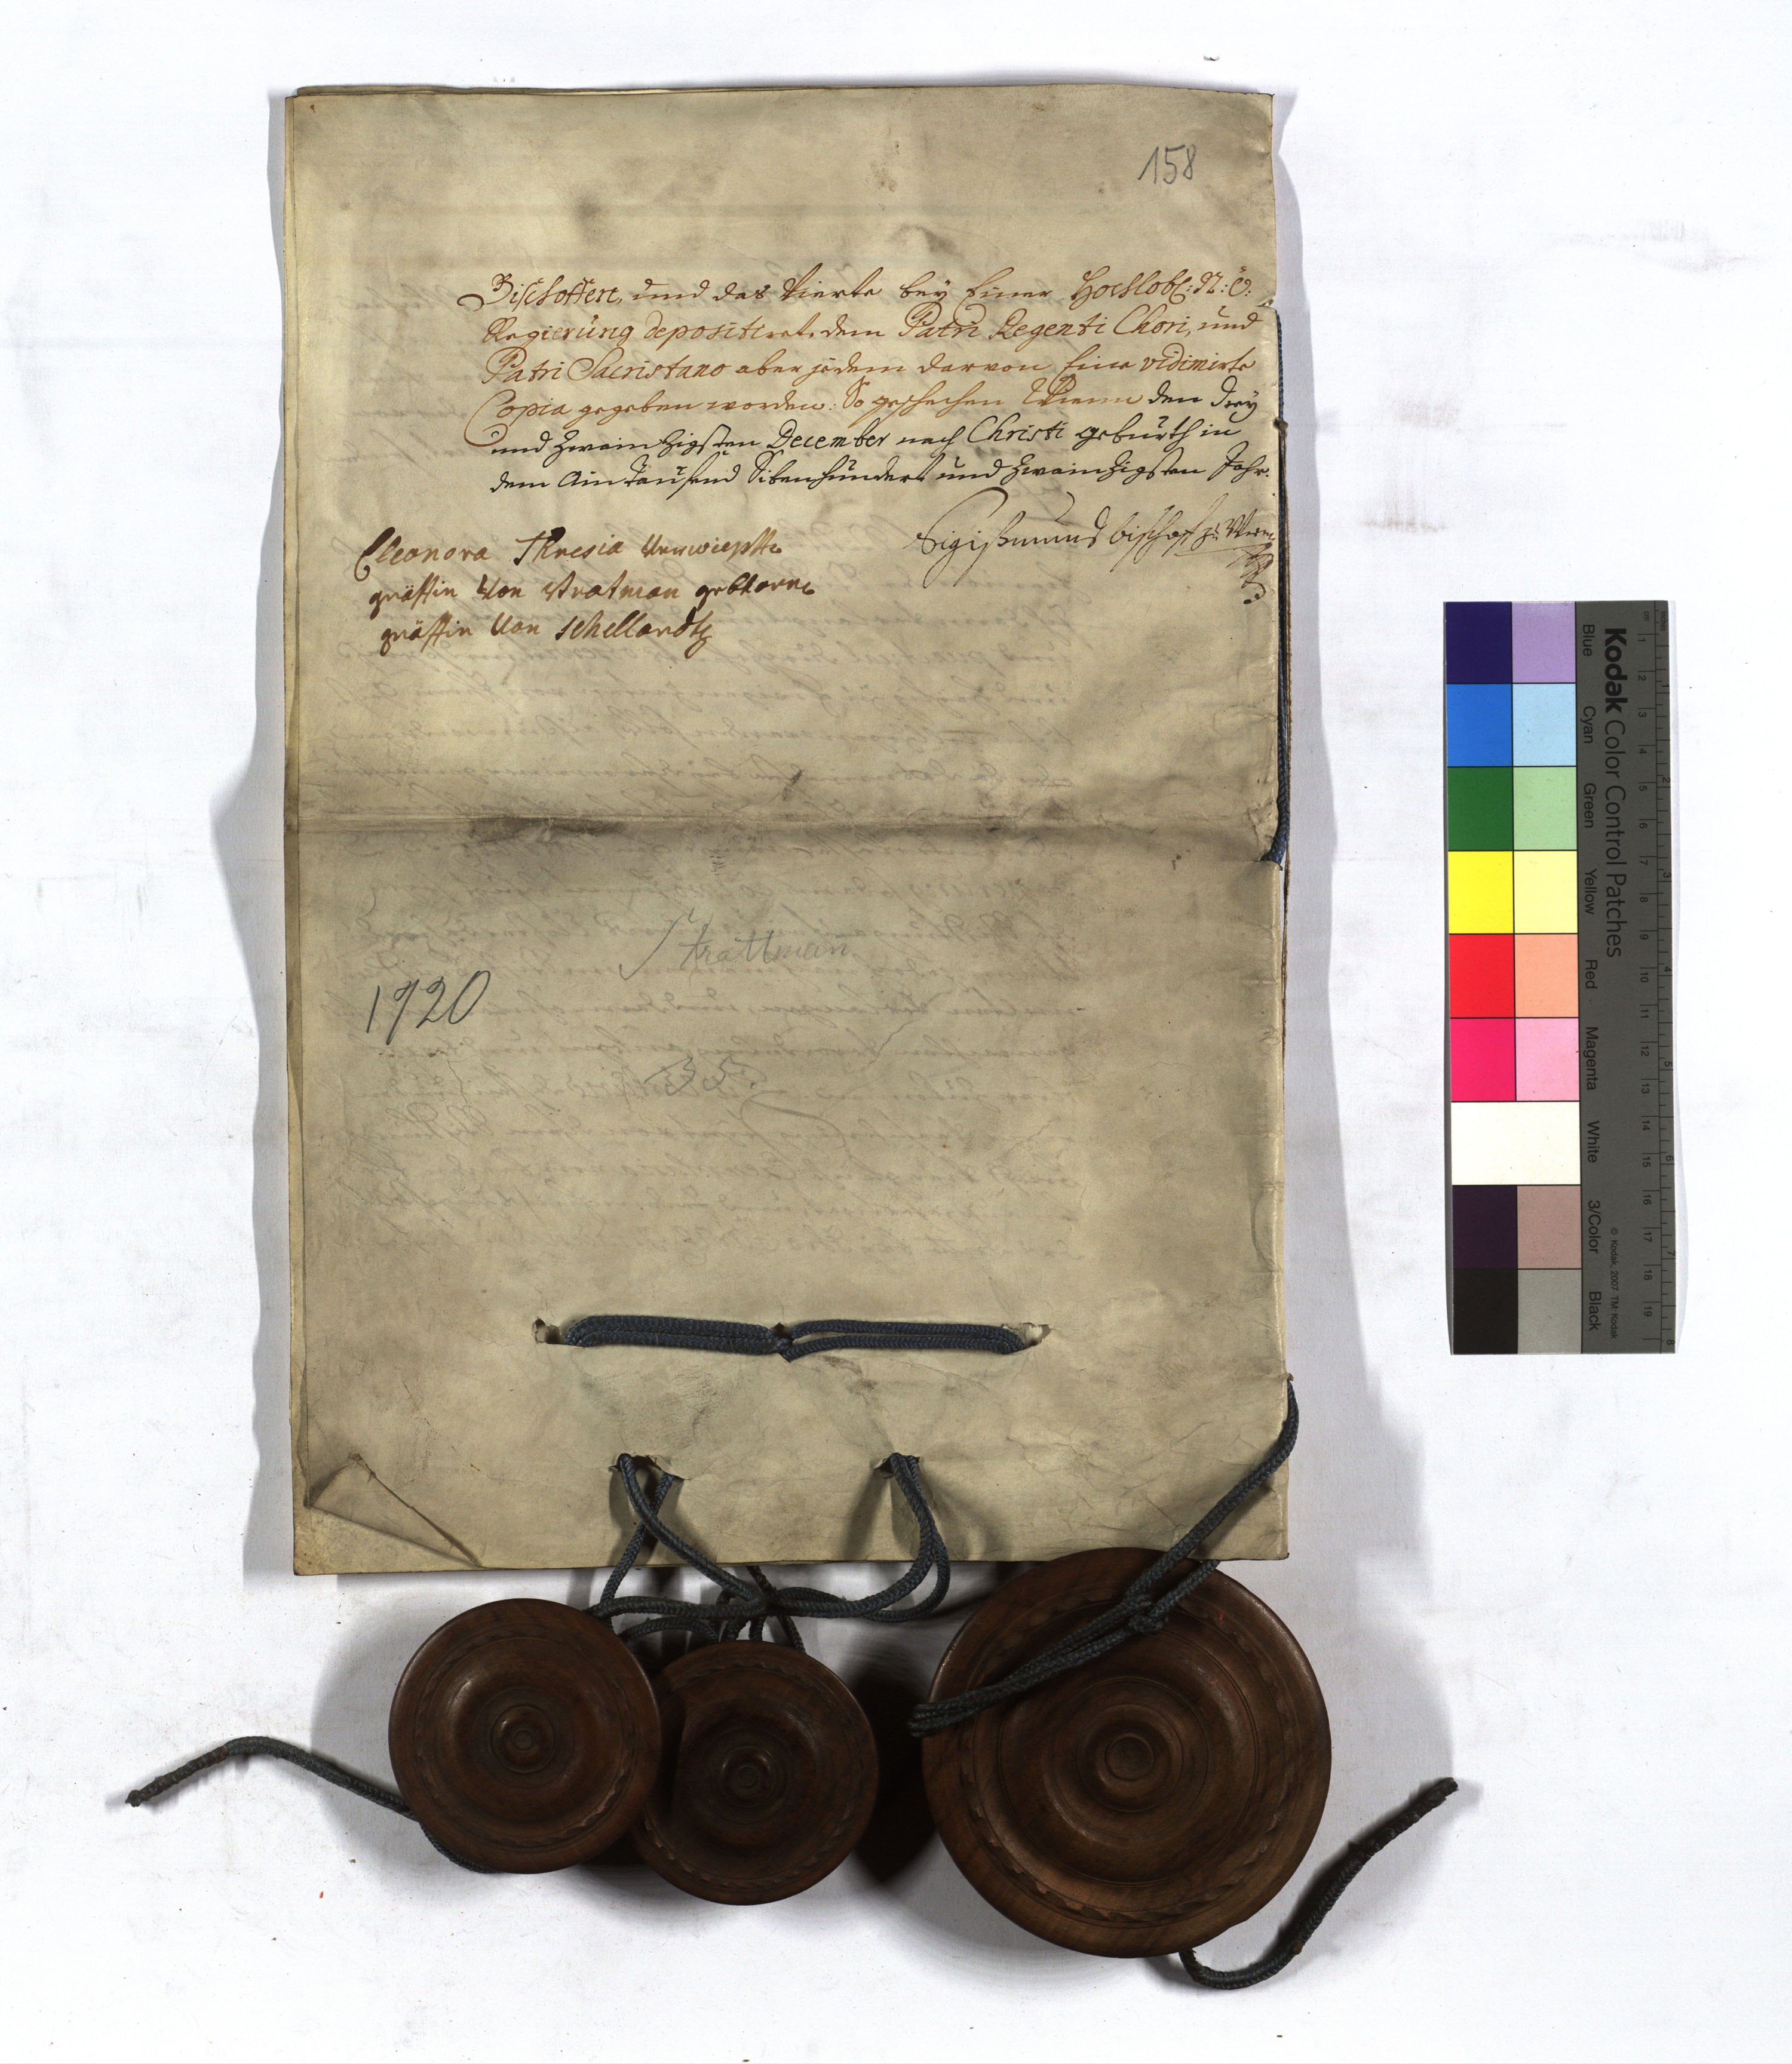 158
Bischoffen, und das Vierte bey Einer Hochlobl: N: Ö:
Regierüng depositiret, dem Patri Regenti Chori, und
Patri Sacristano aber jedem darvon Eine vidimirte
Copia gegeben worden. So geschehen Wienn den drey
und zwainzigsten December nach Christi gebürth in
dem Ain Taüsend Sibenhündert und zwainzigsten Jahr.
Sigißmund bischoff zu Wien
Eleonora Thresia
gräffin Von Stratman gebhorne
gräffin Von schellardtz
Strattman
1720
35.
Kodak Color Control Patches
Blue
Cyan
Green
Yellow
Red
Magenta
White
3/Color
Black
© Kodak, 2007 TM: Kodak
cm 1 2 3 4 5 6 7 8 9 10 11 12 13 14 15 16 17 18 19
inches 1 2 3 4 5 6 7 8